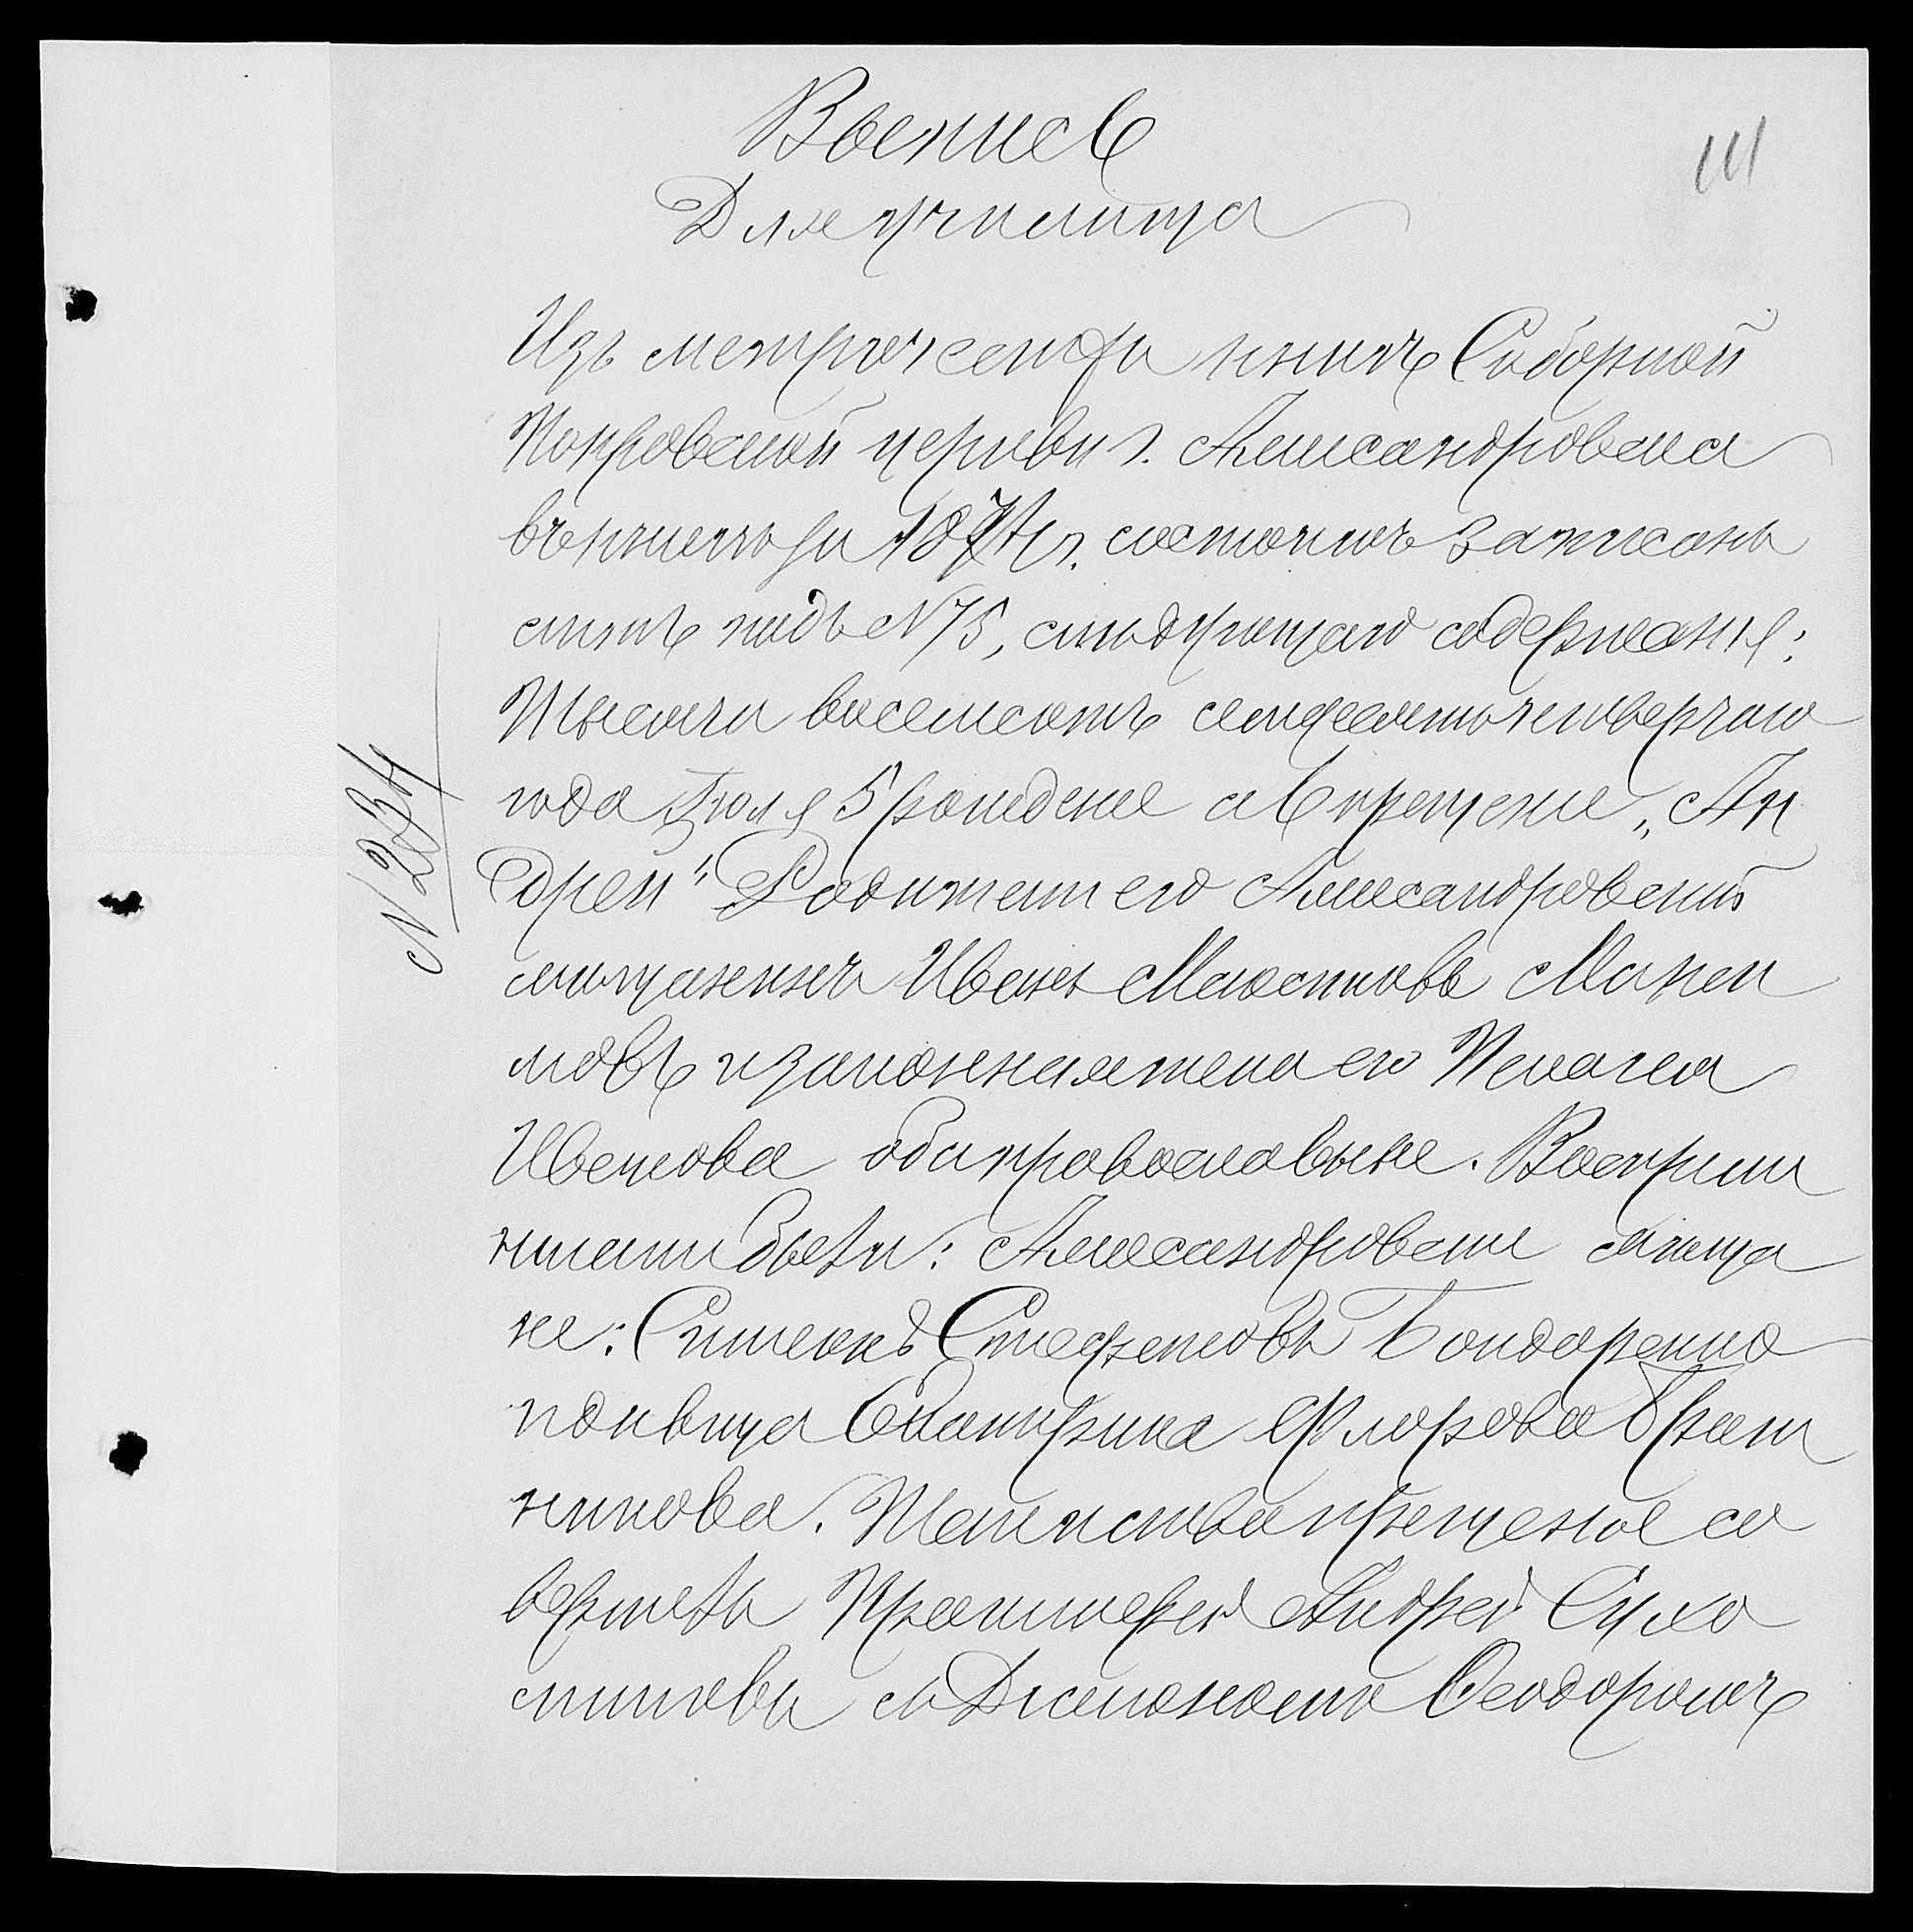 Выпись
111
Для училища
Изъ метрическихъ книгъ Соборной
Покровской церкви г. Александровска
въ книге за 1874 г. состоитъ записанъ
актъ подъ N 75, слѣдующаго содержанія:
Тысяча восемсотъ семдесятъ четвертаго
года Іюля 5 рожденъ а 6 крещенъ „Ан
дрей“ Родители его Александровскій
мѣщанинъ Иванъ Максимовъ
и законная жена его Пелагея
Иванова оба православные. Воспріем
никами были: Александровскіе мѣща
не: Симеонъ Стефановъ Бондаренко
и дѣвица Екатерина Флорова
N 234
никова. Таинство крещенія со
вершалъ Протоіерей Андрей Сухо
млиновъ съ Діакономъ Феодоромъ